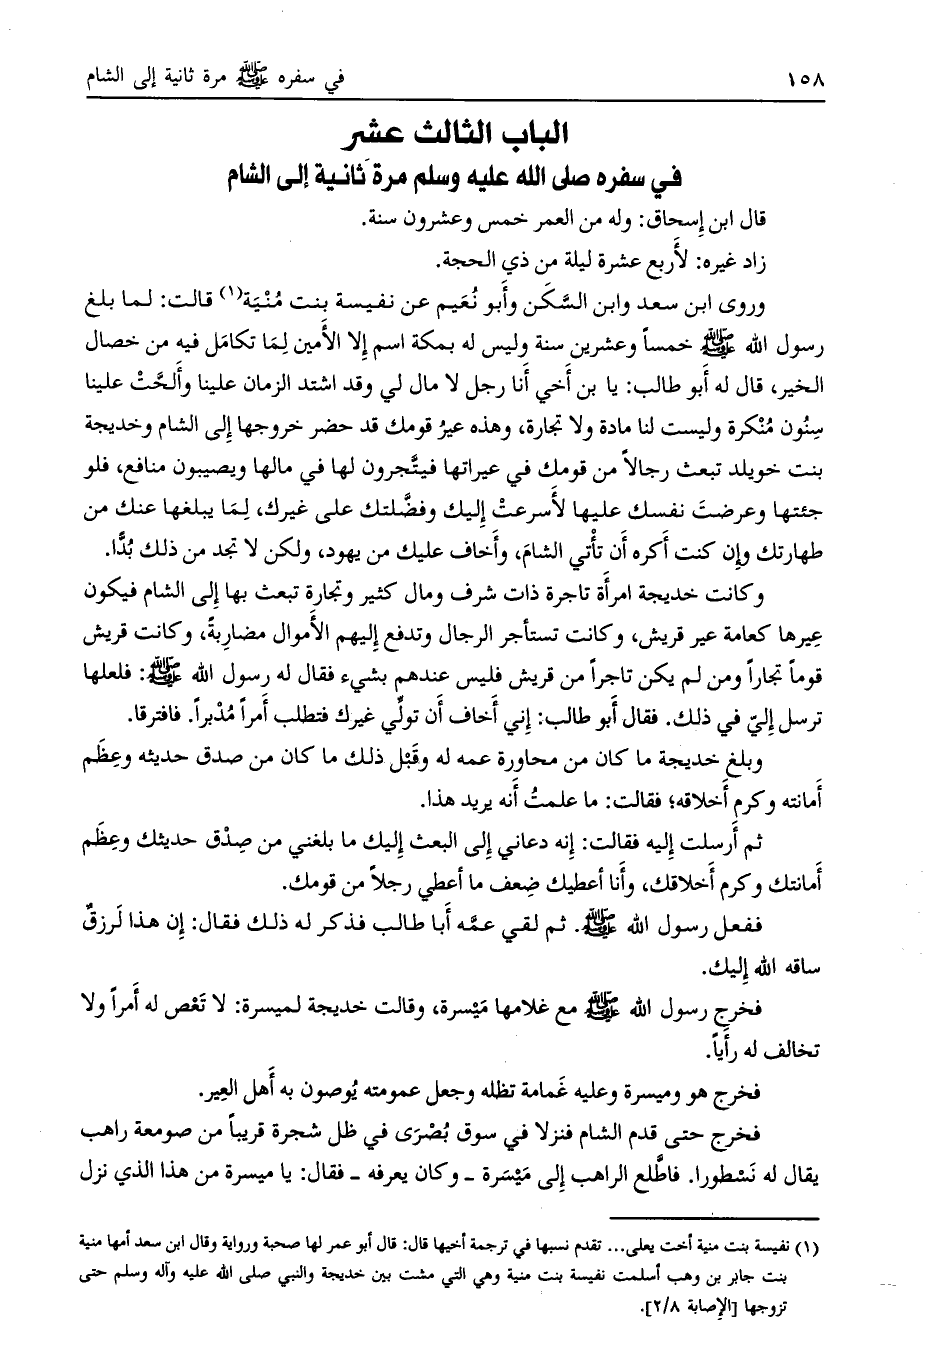 ١٥٨ في سفره ﷺ مرة ثانية إلى الشام
الباب الثالث عشر
في سفره صلى الله عليه وسلم مرة ثانية إلى الشام
قال ابن إسحاق: وله من العمر خمس وعشرون سنة.
زاد غيره: لأَربع عشرة ليلة من ذي الحجة.
وروى ابن سعد وابن السَّكَن وأَبو نُعَيم عن نفيسة بنت مُنْيَة(١) قالت: لما بلغ
رسول الله ﷺ خمساً وعشرين سنة وليس له بمكة اسم إلا الأَمين لِمَا تكامَل فيه من خصال
الخير، قال له أَبو طالب: يا بن أَخي أَنا رجل لا مال لي وقد اشتد الزمان علينا وأَلحَّتْ علينا
سِنُون مُنْكرة وليست لنا مادة ولا تجارة، وهذه عيرُ قومك قد حضر خروجها إِلى الشام وخديجة
بنت خويلد تبعث رجالاً من قومك في عيراتها فيتَّجرون لها في مالها ويصيبون منافع، فلو
جئتها وعرضتَ نفسك عليها لأَسرعتْ إِليك وفضَّلتك على غيرك، لِمَا يبلغها عنك من
طهارتك وإِن كنت أَكره أَن تأْتي الشامَ، وأَخاف عليك من يهود، ولكن لا تجد من ذلك بُدًّا.
وكانت خديجة امرأَة تاجرة ذات شرف ومال كثير وتجارة تبعث بها إِلى الشام فيكون
عِيرها كعامة عير قريش، وكانت تستأجر الرجال وتدفع إِليهم الأَموال مضاربةً، وكانت قريش
قوماً تجاراً ومن لم يكن تاجراً من قريش فليس عندهم بشيء فقال له رسول الله ﷺ: فلعلها
ترسل إِليّ في ذلك. فقال أَبو طالب: إِني أَخاف أَن تولِّي غيرك فتطلب أَمراً مُدْبراً. فافترقا.
وبلغ خديجة ما كان من محاورة عمه له وقَبْل ذلك ما كان من صدق حديثه وعِظَم
أَمانته وكرم أَخلاقه؛ فقالت: ما علمتُ أَنه يريد هذا.
ثم أَرسلت إِليه فقالت: إِنه دعاني إِلى البعث إِليك ما بلغني من صِدْق حديثك وعِظَم
أَمانتك وكرم أَخلاقك، وأَنا أعطيك ضِعف ما أعطي رجلاً من قومك.
ففعل رسول الله ﷺ. ثم لقي عمَّه أَبا طالب فذكر له ذلك فقال: إِن هذا لَرزقٌ
ساقه الله إِليك.
فخرج رسول الله ﷺ مع غلامها مَيْسرة، وقالت خديجة لميسرة: لا تَعْص له أَمراً ولا
تخالف له رأَياً.
فخرج هو وميسرة وعليه غَمامة تظله وجعل عمومته يُوصون به أَهل العِير.
فخرج حتى قدم الشام فنزلا في سوق بُصْرَى في ظل شجرة قريباً من صومعة راهب
يقال له نَسْطورا. فاطَّلع الراهب إِلى مَيْسَرة ـ وكان يعرفه ـ فقال: يا ميسرة من هذا الذي نزل
(١) نفيسة بنت منية أخت يعلى... تقدم نسبها في ترجمة أخيها قال: قال أبو عمر لها صحبة ورواية وقال ابن سعد أمها منية
بنت جابر بن وهب أسلمت نفيسة بنت منية وهي التي مشت بين خديجة والنبي صلى الله عليه وآله وسلم حتى
تزوجها [الإصابة ٢/٨].